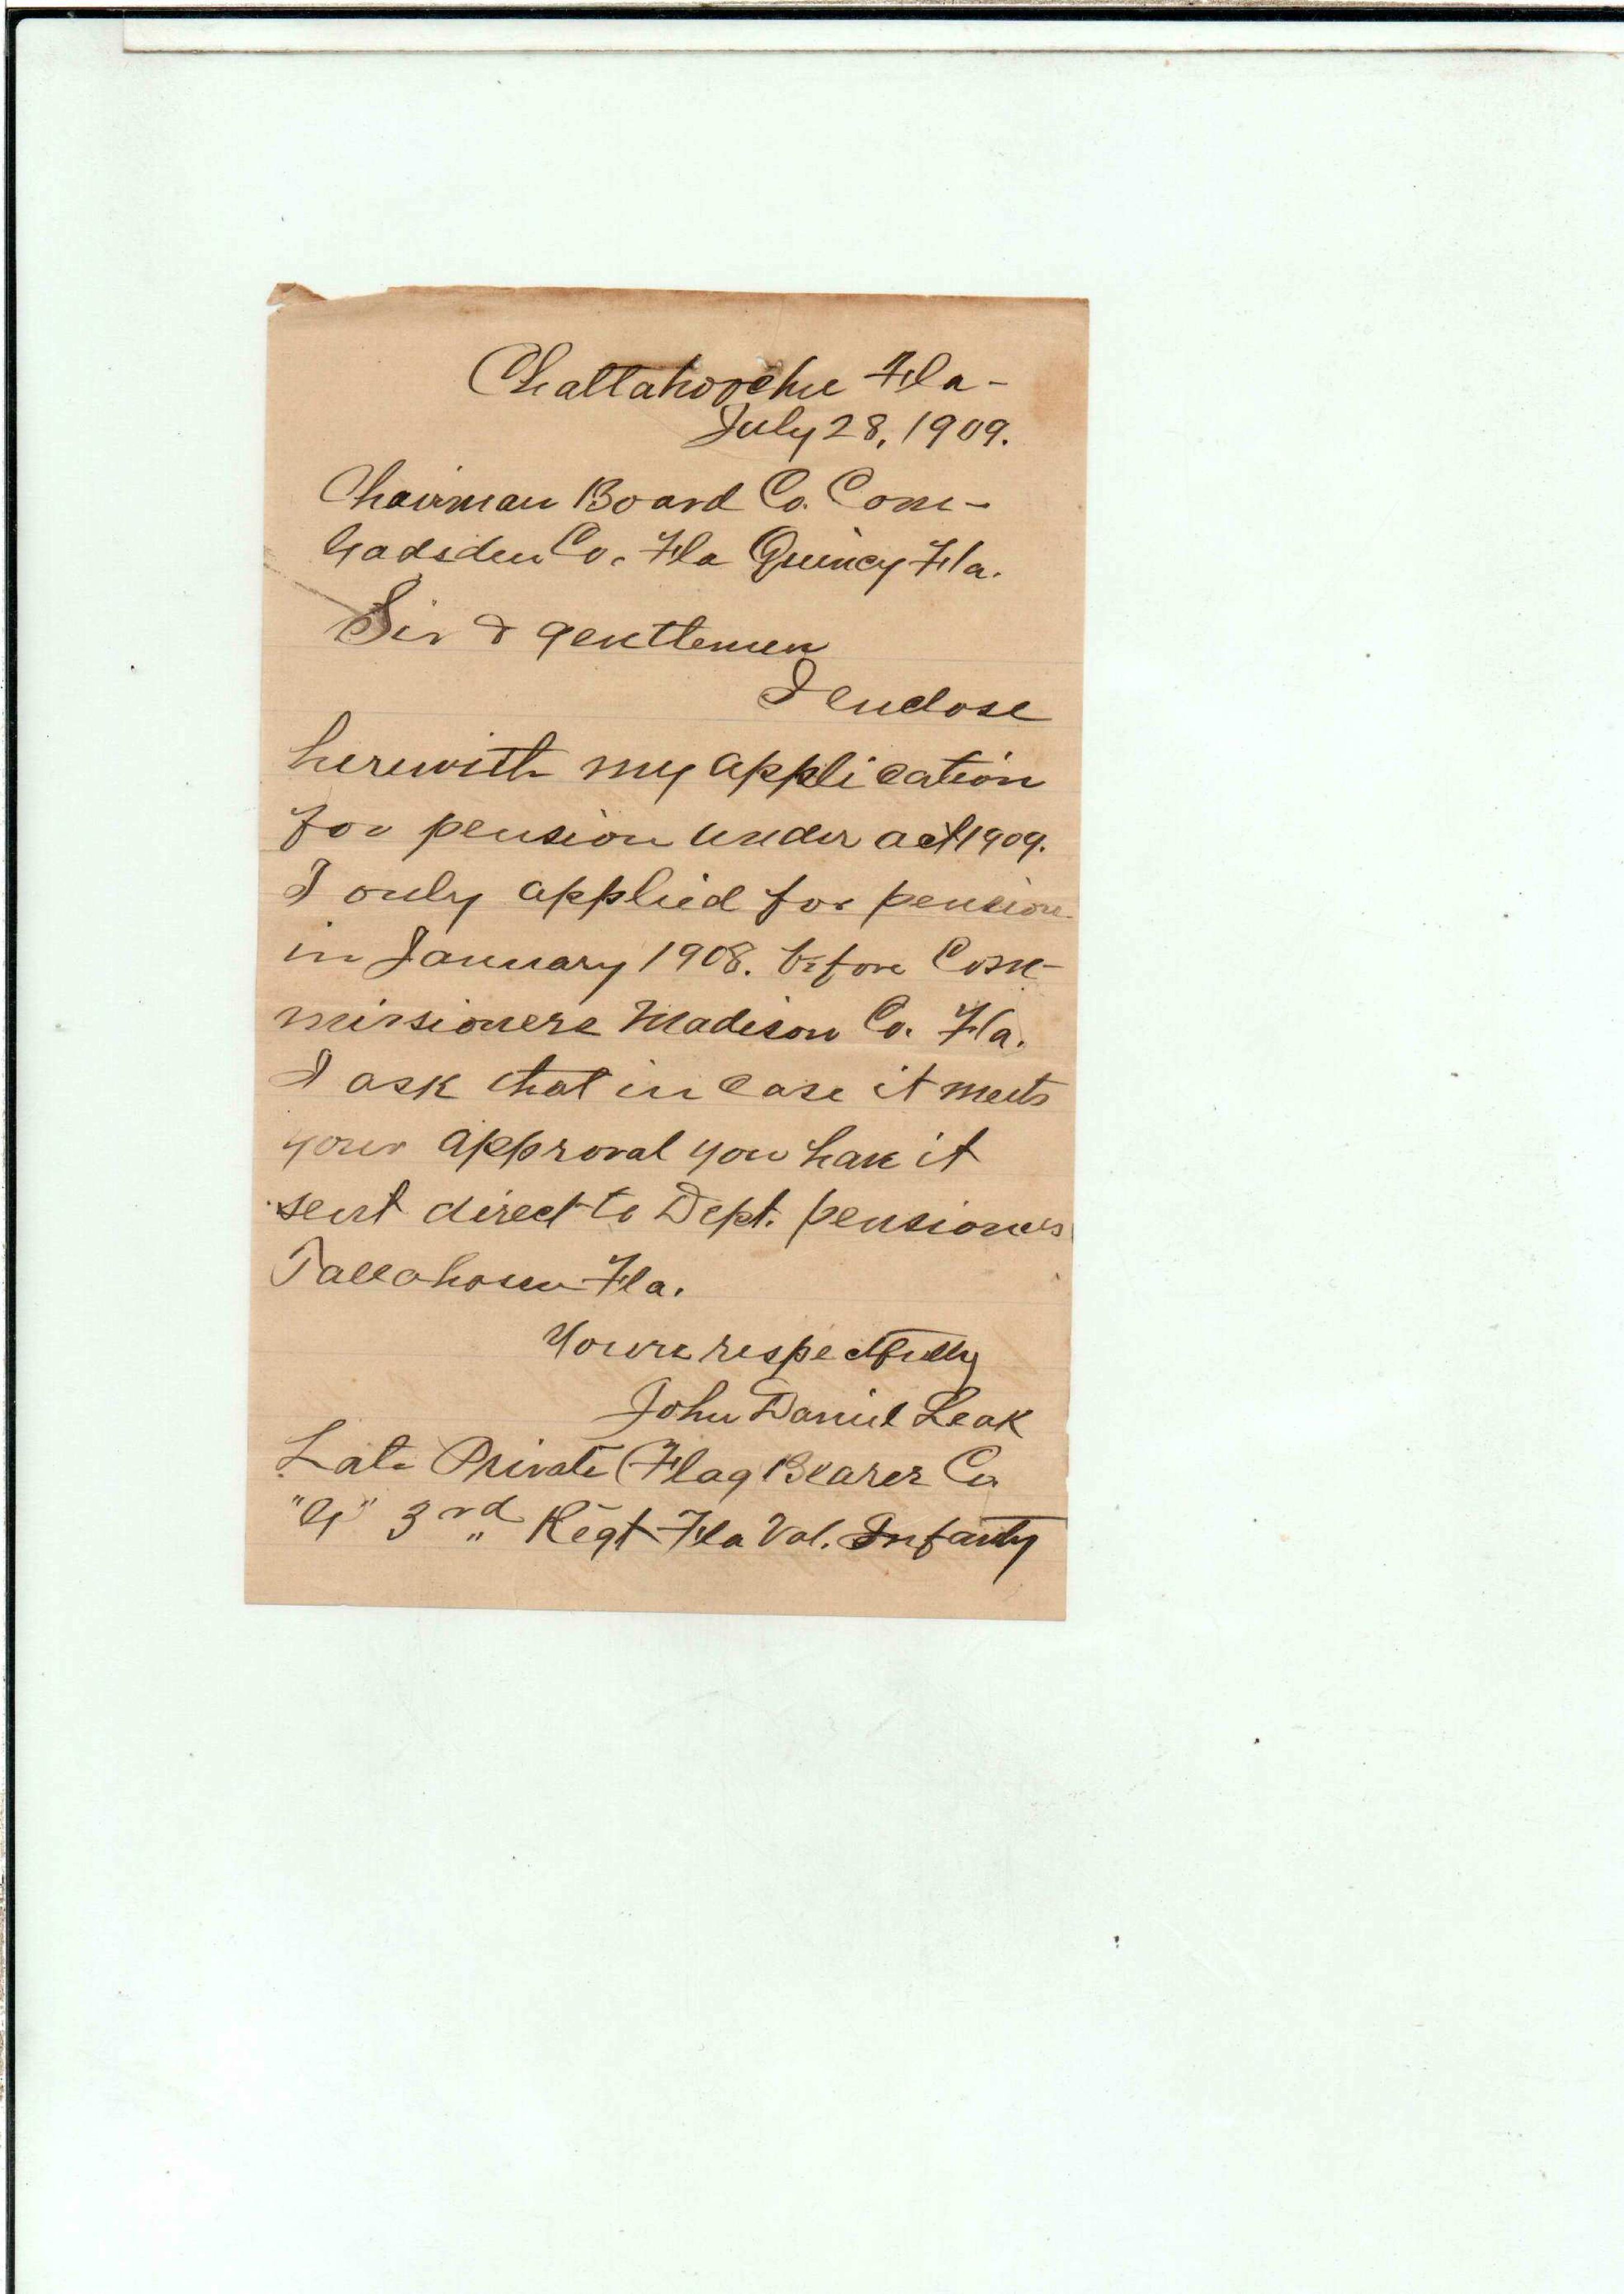 Chattahoochee Fla-
July 28, 1909.
Chairman Board Co. Com-
Gadsden Co. Fla Quincy Fla.
Sir & gentlemen
I enclose
herewith my application
for pension under act 1909.
I only applied for pension
in January 1908. before Com-
missioners Madison Co. Fla.
I ask that in case it meets
your approval you have it
sent direct to Dept. pensions
Tallahassee Fla.
Yours respectfully
John Daniel Leak
Late Private (Flag Bearer Co
"G" 3rd Regt Fla Vol. Infanty